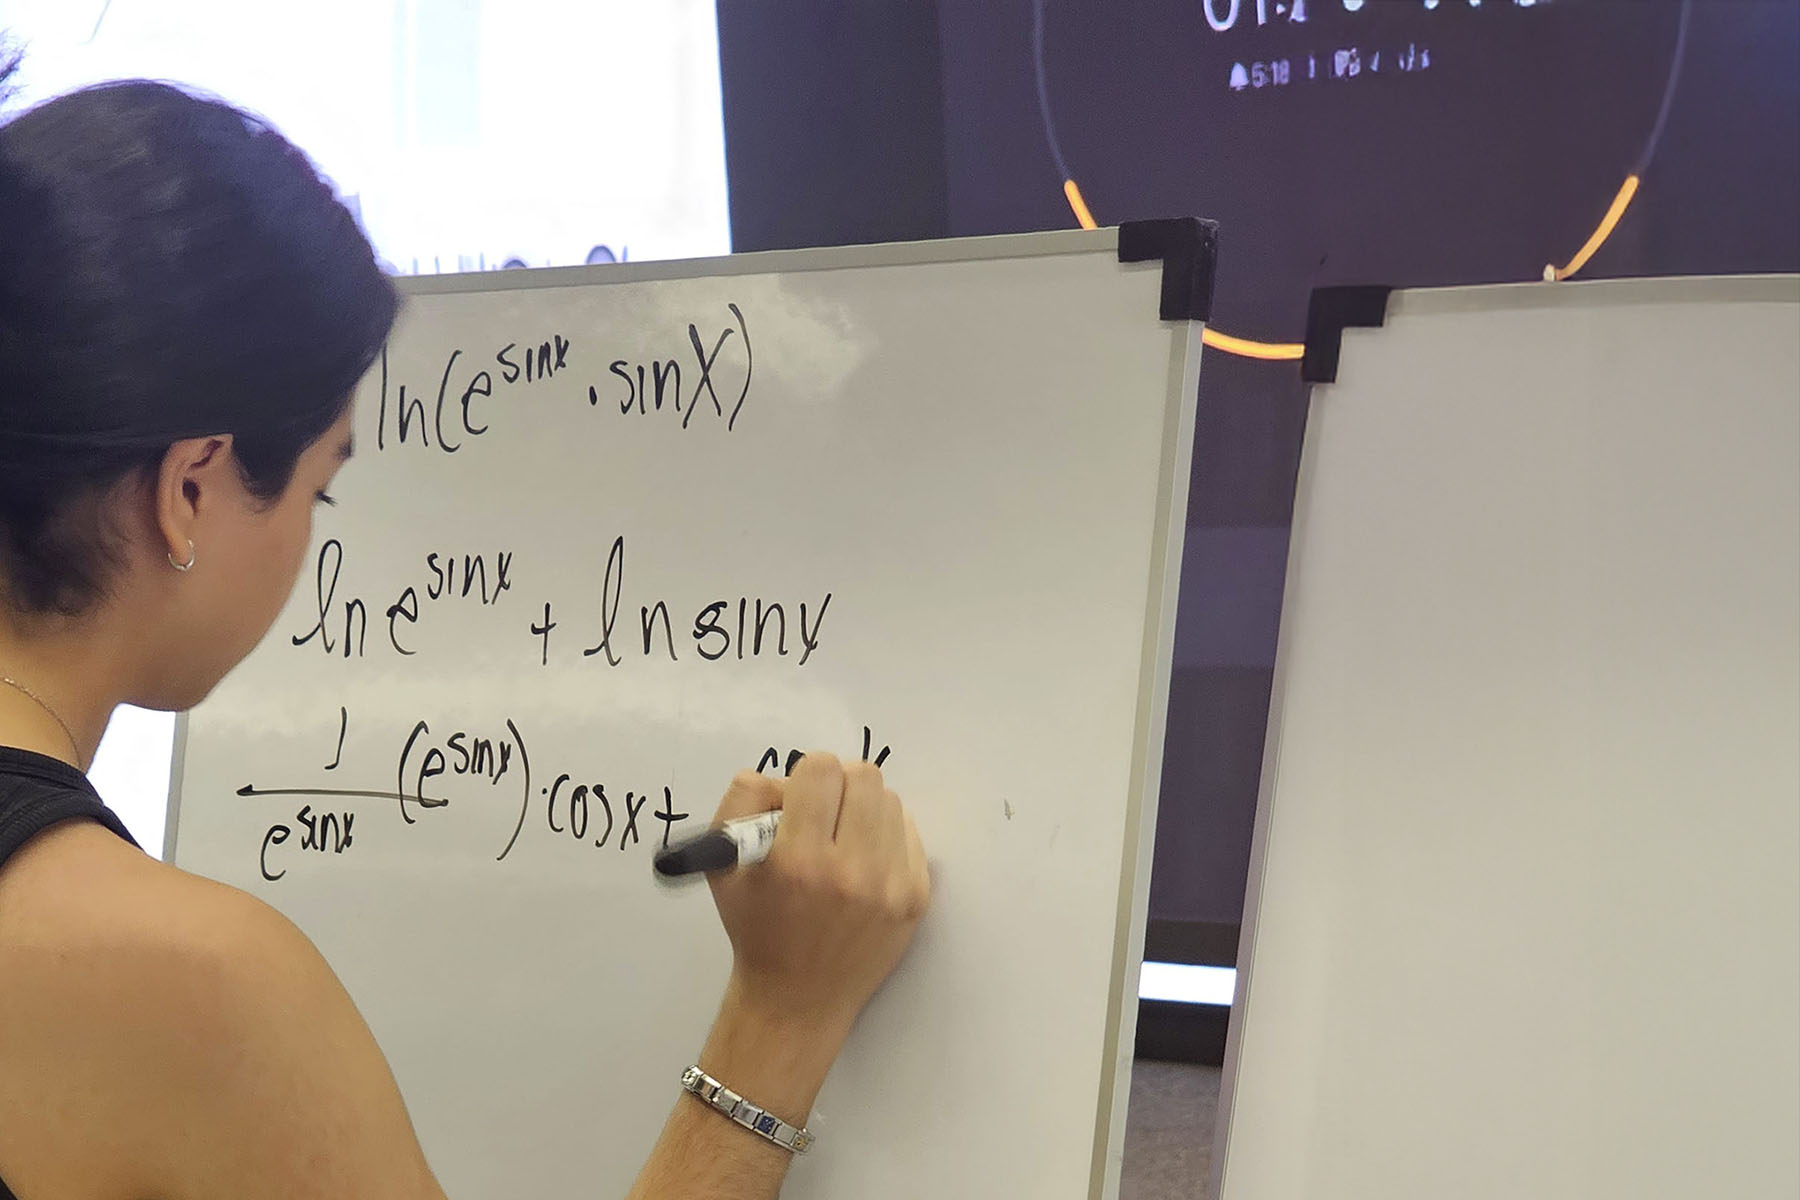 ln(e^sinx · sinx)
ln e^sinx + ln sinx
1/e^sinx (e^sinx) · cosx +
5:18